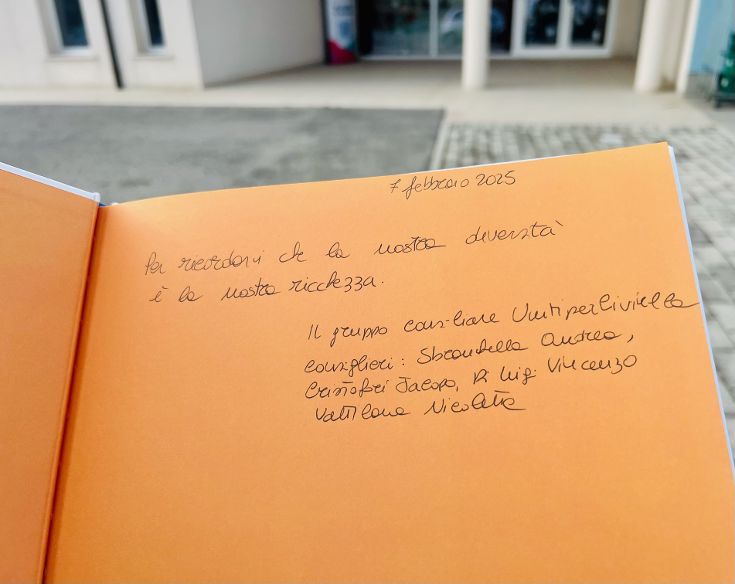 7 febbraio 2025
Per ricordarvi che la nostra diversità
è la nostra ricchezza.
Il gruppo consiliare Uniti per Civitella
consiglieri: Sbrandella Andrea,
Cristofari Jacopo, Di Luigi Vincenzo
Nicoletta